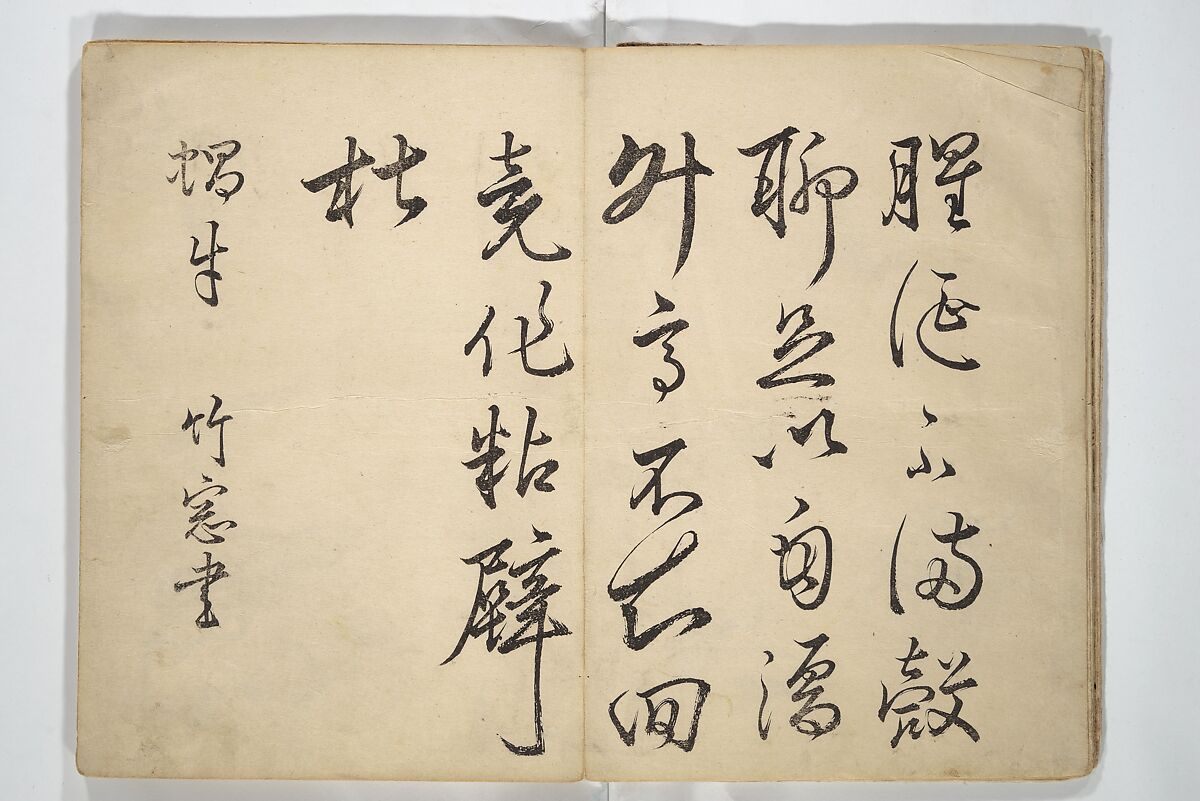 腥涎不滿殼
聊足以自濡
升高不知回
竟作粘壁
枯
蝸牛 竹窓書